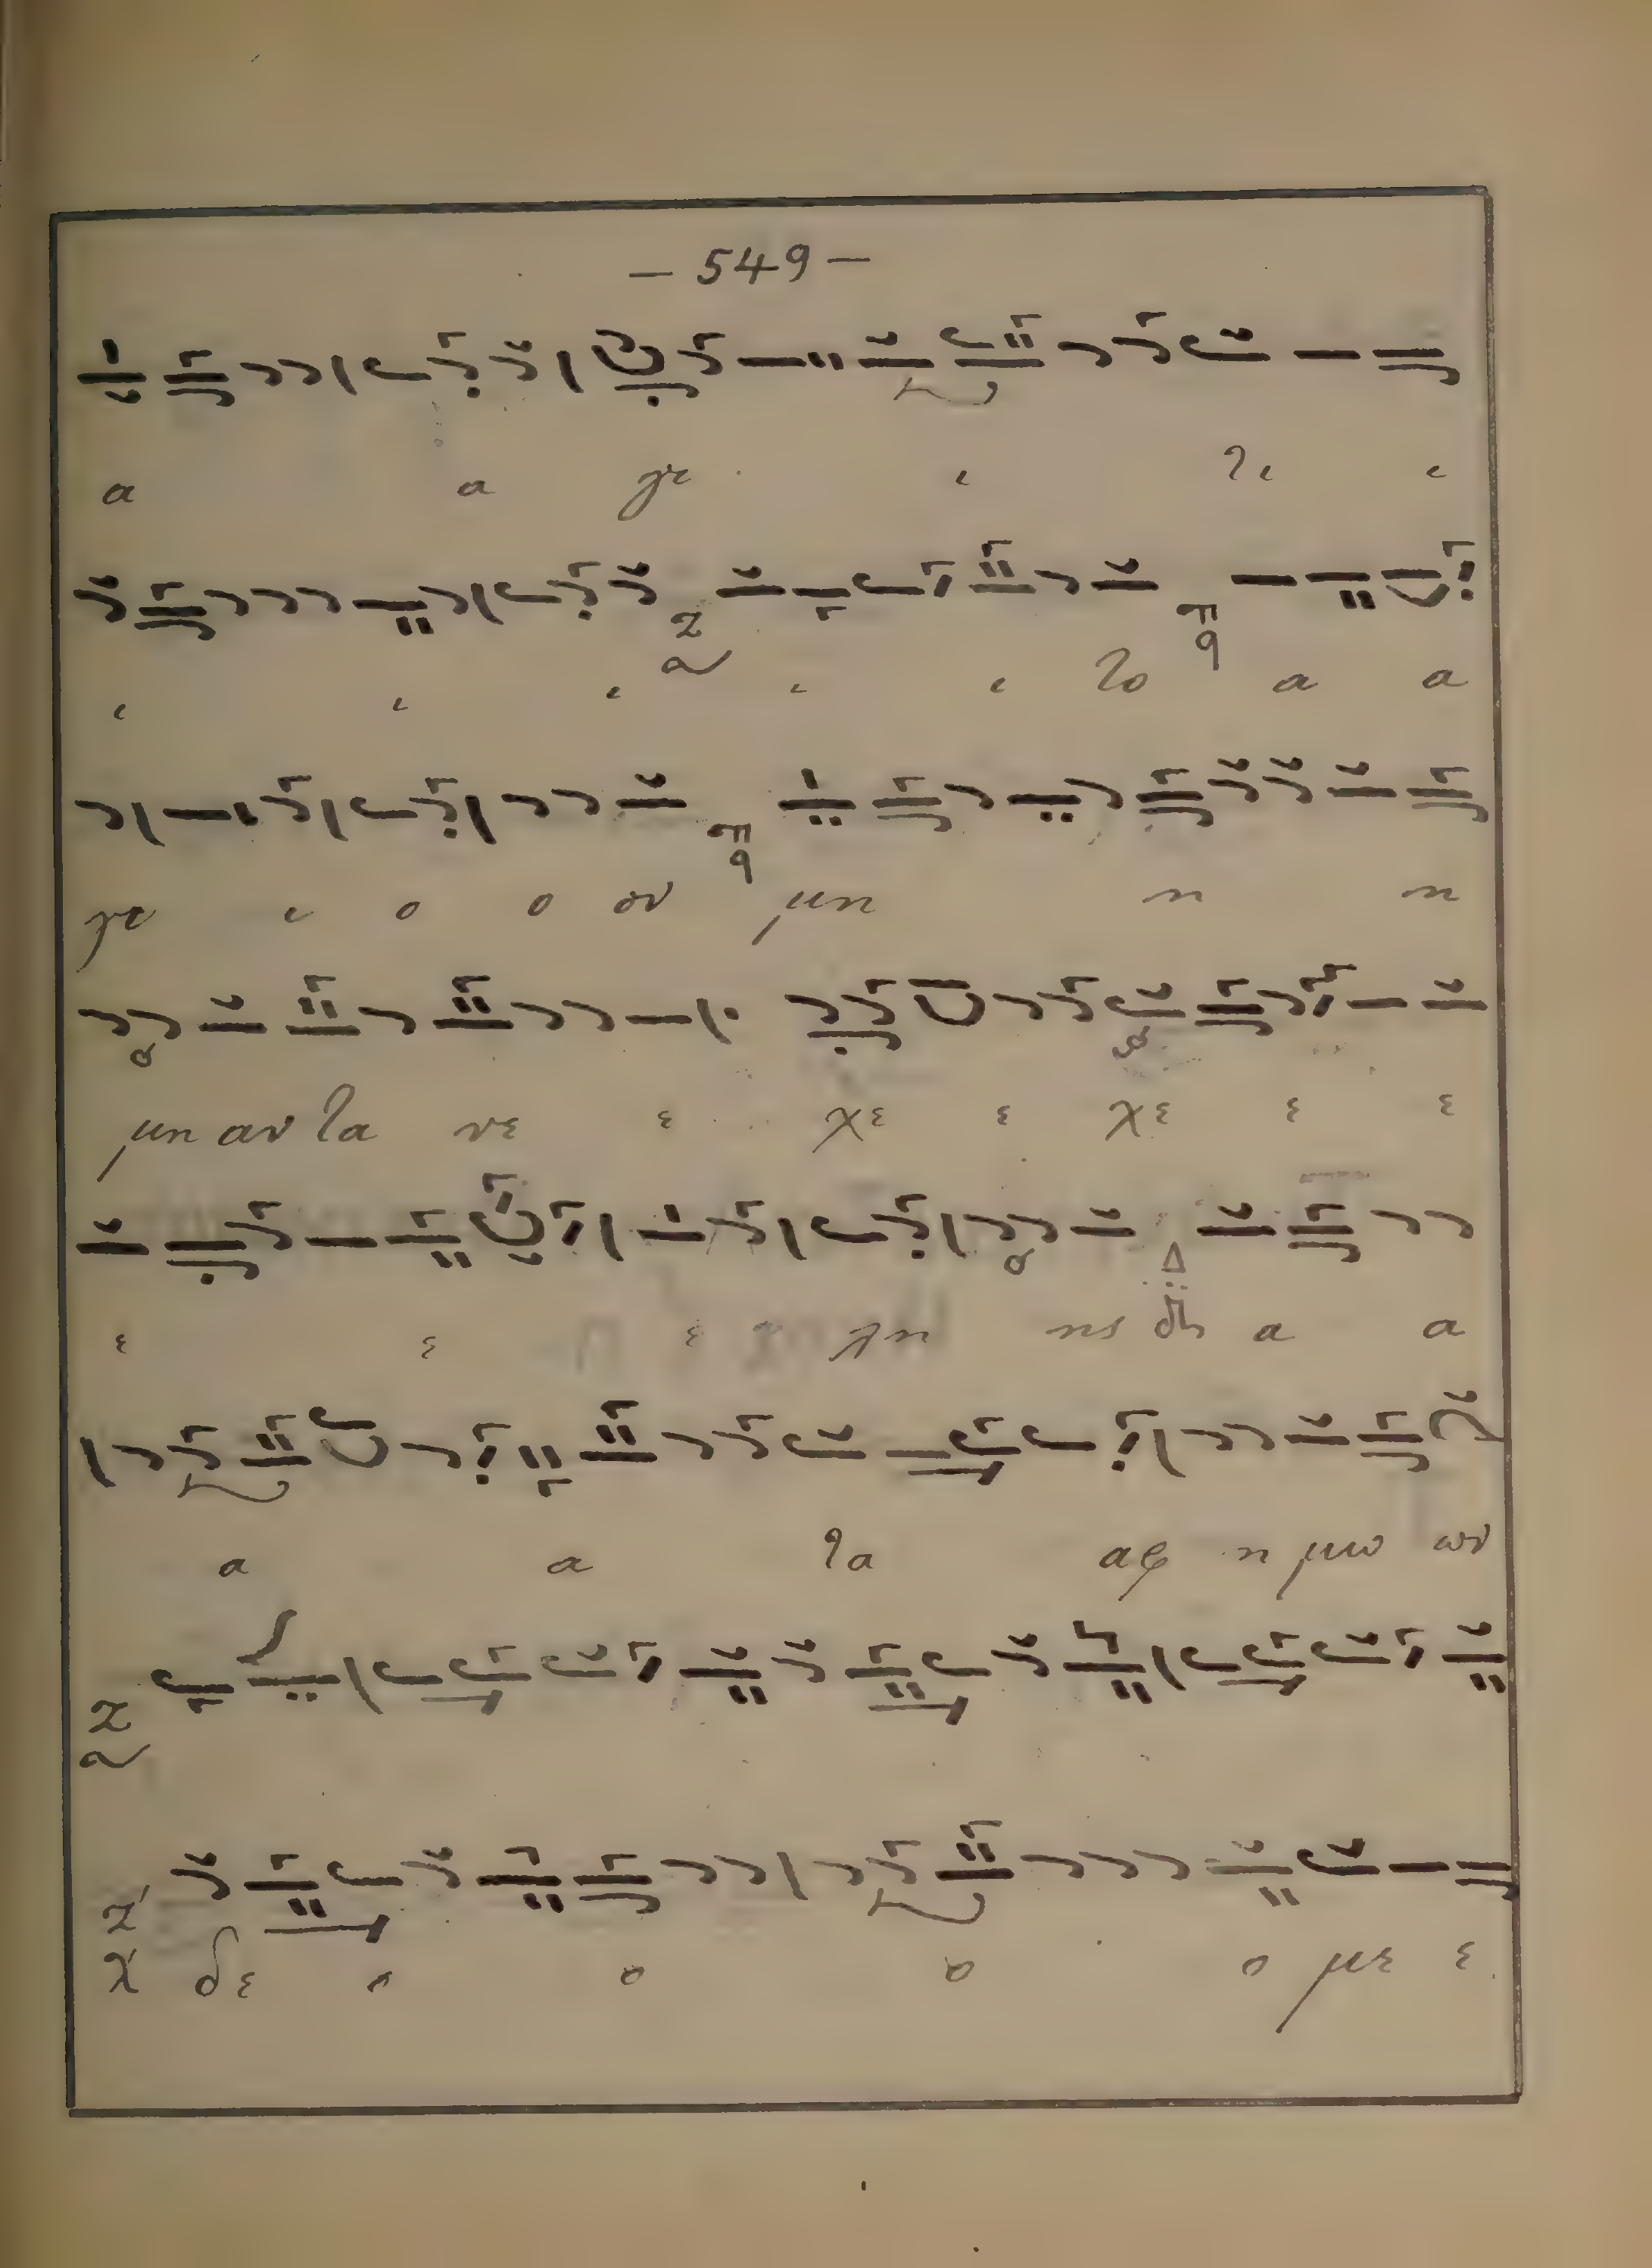 — 549 —
α α γι ι τι ι
ι ι ι ι ι το α α
γι ι ο ο ου μη η η
μη αν τα νε ε χε ε χε ε ε
ε ε ε λη ης α α
α α τα αφ η μω ων
δε ο ο ο ο με ε